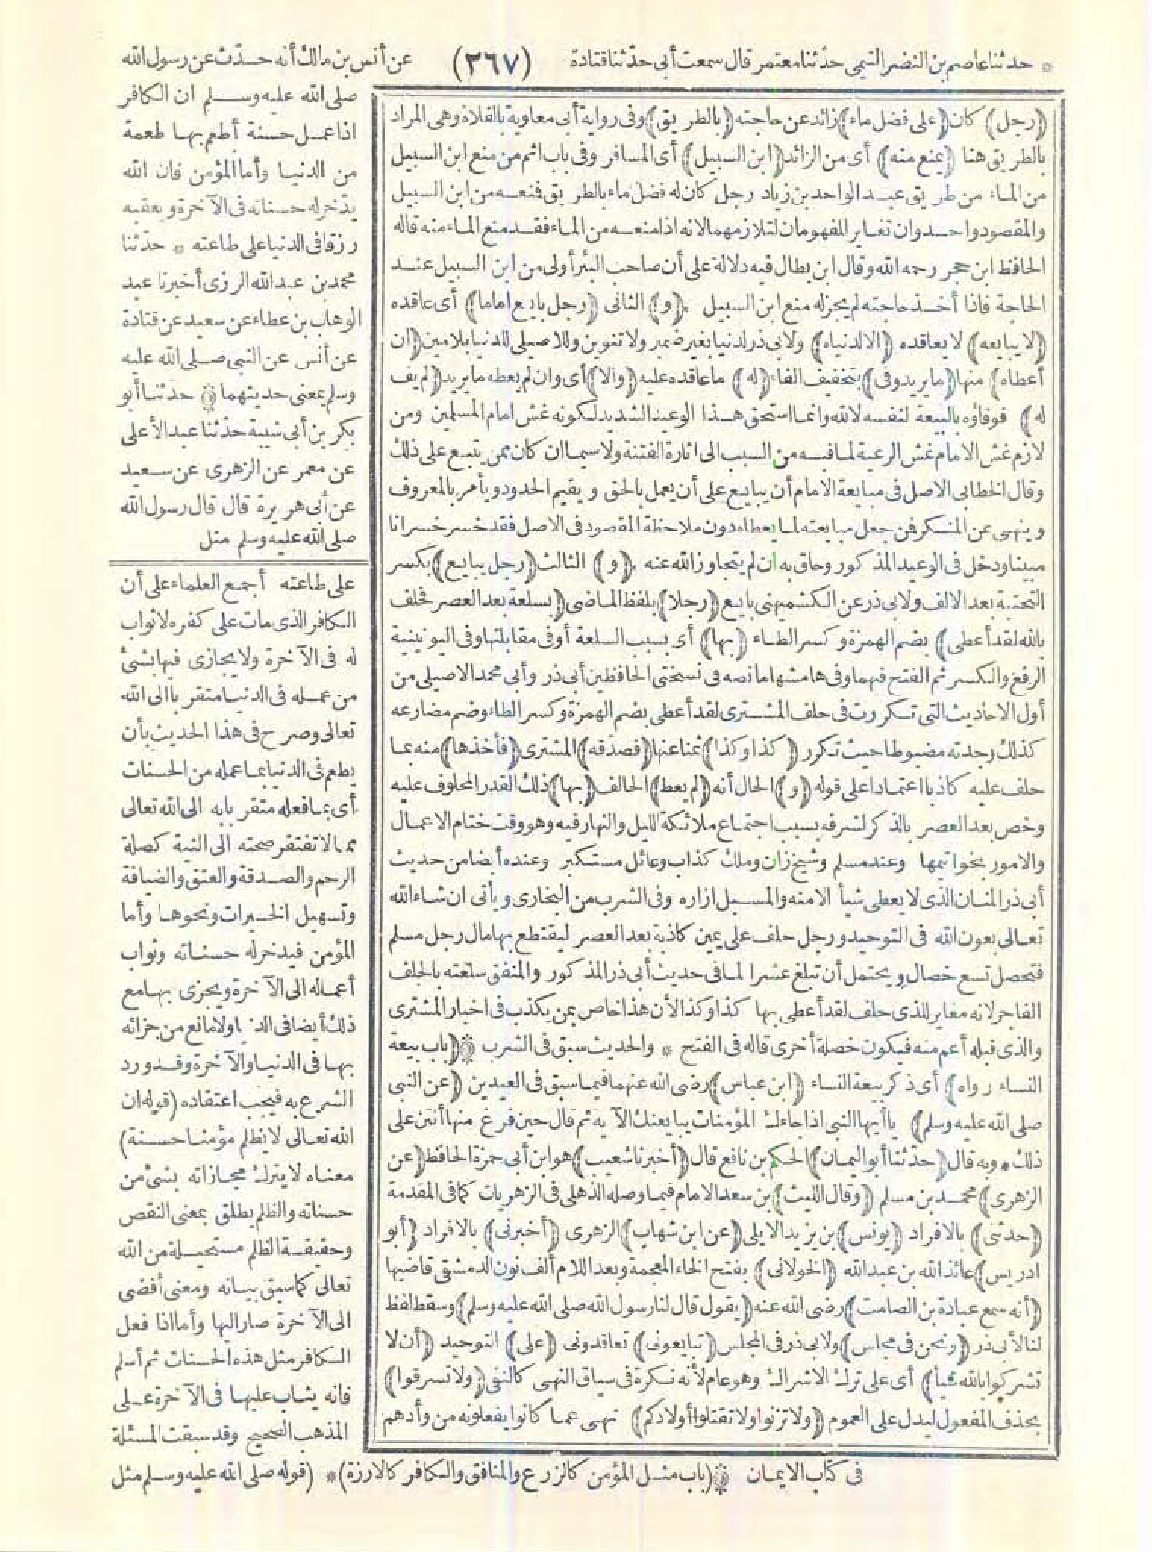 * حدثنا عاصم بن النضر التيمى حدثنا معتمر قال سمعت أبى حدثنا قتادة (٣٦٧) عن أنس بن مالك أنه حدّث عن رسول الله
صلى الله عليه وسلم ان الكافر
اذا عمل حسنة أطعم بها طعمة
من الدنيا وأما المؤمن فان الله
يدّخر له حسناته فى الآخرة ويعقبه
رزقا فى الدنيا على طاعته * حدّثنا
محمد بن عبد الله الرزى أخبرنا عبد
الوهاب بن عطاء عن سعيد عن قتادة
عن أنس عن النبى صلى الله عليه
وسلم بمعنى حديثهما * حدثنا أبو
بكر بن أبى شيبة حدّثنا عبد الأعلى
عن معمر عن الزهرى عن سعيد
عن أبى هريرة قال قال رسول الله
صلى الله عليه وسلم مثل
على طاعته أجمع العلماء على أن
الكافر الذى مات على كفره لا ثواب
له فى الآخرة ولا يجازى فيها بشئ
من عمله فى الدنيا متقربا الى الله
تعالى وصرح فى هذا الحديث بأن
يطعم فى الدنيا بما عمله من الحسنات
أى بما فعله متقربا به الى الله تعالى
مما لا تفتقر صحته الى النية كصلة
الرحم والصدقة والعتق والضيافة
وتسهيل الخيرات ونحوها وأما
المؤمن فيدخر له حسناته وثواب
أعماله الى الآخرة ويجزى بها مع
ذلك أيضا فى الدنيا ولا مانع من جزائه
بها فى الدنيا والآخرة وقد ورد
الشرع به فيجب اعتقاده (قوله ان
الله تعالى لا يظلم مؤمنا حسنة)
معناه لا يترك مجازاته بشئ من
حسناته والظلم يطلق بمعنى النقص
وحقيقة الظلم مستحيلة من الله
تعالى كما سبق بيانه ومعنى أفضى
الى الآخرة صار اليها وأما اذا فعل
الكافر مثل هذه الحسنات ثم أسلم
فانه يثاب عليها فى الآخرة على
المذهب الصحيح وقد سبقت المسئلة
(رجل) كان (على فضل ماء) زائد عن حاجته (بالطريق) وفى رواية أبى معاوية بالفلاة وهى المراد
بالطريق هنا (يمنع منه) أى من الزائد (ابن السبيل) أى المسافر وفى باب اثم من منع ابن السبيل
من الماء من طريق عبد الواحد بن زياد رجل كان له فضل ماء بالطريق فنعه من ابن السبيل
والمقصود واحد وان تغاير المفهومان لتلازمهما لانه اذا منعه من الماء فقد منع الماء منه قاله
الحافظ ابن حجر رحمه الله وقال ابن بطال فيه دلالة على أن صاحب البئر أولى من ابن السبيل عند
الحاجة فاذا أخذ حاجته لم يجز له منع ابن السبيل (و) الثانى (رجل بايع اماما) أى عاقده
(لا يبايعه) لا يعاقده (الا لدنياه) ولابى ذر لدنيا بغير ضمير ولا تنوين وللاصيلى للدنيا بلامين (ان
أعطاه) منها (ما يريد وفى) بتخفيف الفاء (له) ما عاقده عليه (والا) أى وان لم يعطه ما يريد (لم يف
له) فوفاؤه بالبيعة لنفسه لا لله وانما استحق هذا الوعيد الشديد لكونه غش امام المسلمين ومن
لازم غش الامام غش الرعية لما فيه من السبب الى اثارة الفتنة ولا سيما ان كان ممن يتبع على ذلك
وقال الخطابى الاصل فى مبايعة الامام أن يبايع على أن يعمل بالحق ويقيم الحدود ويأمر بالمعروف
وينهى عن المنكر فمن جعل مبايعته لما يعطاه دون ملاحظة المقصود فى الاصل فقد خسر خسرانا
مبينا ودخل فى الوعيد المذكور وحاق به ان لم يتجاوز الله عنه (و) الثالث (رجل يبايع) بكسر
التحتية بعد الالف ولابى ذر عن الكشميهنى بايع (رجلا) بلفظ الماضى (بسلعة بعد العصر فحلف
بالله لقد أعطى) بضم الهمزة وكسر الطاء (بها) أى بسبب السلعة أو فى مقابلتها وفى اليونينية
الرفع والكسر ثم الفتح فيهما وفى هامشها ما نصه فى نسختى الحافظين أبى ذر وأبى محمد الاصيلى من
أول الاحاديث التى تكررت فى حلف المشترى لقد أعطى بضم الهمزة وكسر الطاء وضم مضارعه
كذلك وجدته مضبوطا حيث تكرر (كذا وكذا) ثمنا عنها (فصدقه) المشترى (فأخذها) منه بما
حلف عليه كاذبا اعتمادا على قوله (و) الحال أنه (لم يعط) الحالف (بها) ذلك القدر المحلوف عليه
وخص بعد العصر بالذكر لشرفه بسبب اجتماع ملائكة الليل والنهار فيه وهو وقت ختام الاعمال
والامور بخواتيمها وعند مسلم وشيخ زان وملك كذاب وعائل مستكبر وعنده أيضا من حديث
أبى ذر المنان الذى لا يعطى شيأ الا منه والمسبل ازاره وفى الشرب من البخارى ويأتى ان شاء الله
تعالى بعون الله فى التوحيد ورجل حلف على يمين كاذبة بعد العصر ليقتطع بها مال رجل مسلم
فتحصل تسع خصال ويحتمل أن تبلغ عشرا لما فى حديث أبى ذر المذكور والمنفق سلعته بالحلف
الفاجر لانه مغاير للذى حلف لقد أعطى بها كذا وكذا لأن هذا خاص بمن يكذب فى اخبار المشترى
والذى قبله أعم منه فيكون خصلة أخرى قاله فى الفتح * والحديث سبق فى الشرب * (باب بيعة
النساء رواه) أى ذكر بيعة النساء (ابن عباس) رضى الله عنهما فيما سبق فى العيدين (عن النبى
صلى الله عليه وسلم) يا أيها النبى اذا جاءك المؤمنات يبايعنك الآية ثم قال حين فرغ منها أنتن على
ذلك * وبه قال (حدثنا أبو اليمان) الحكم بن نافع قال (أخبرنا شعيب) هو ابن أبى حمزة الحافظ (عن
الزهرى) محمد بن مسلم (وقال الليث) بن سعد الامام فيما وصله الذهلى فى الزهريات كما فى المقدمة
(حدثنى) بالافراد (يونس) بن يزيد الايلى (عن ابن شهاب) الزهرى (أخبرنى) بالافراد (أبو
ادريس) عائذ الله بن عبد الله (الخولانى) بفتح الخاء المعجمة وبعد اللام ألف نون الدمشقى قاضيها
(أنه سمع عبادة بن الصامت) رضى الله عنه (يقول قال لنا رسول الله صلى الله عليه وسلم) وسقط لفظ
لنا لأبى ذر (ونحن فى مجلس) ولابى ذر فى المجلس (تبايعونى) تعاقدونى (على) التوحيد (أن لا
تشركوا بالله شيأ) أى على ترك الاشراك وهو عام لأنه نكرة فى سياق النهى كالنفى (ولا تسرقوا)
بحذف المفعول ليدل على العموم (ولا تزنوا ولا تقتلوا أولادكم) نهى عما كانوا يفعلونه من وأدهم
فى كتاب الايمان * (باب مثل المؤمن كالزرع والمنافق والكافر كالارزة) * (قوله صلى الله عليه وسلم مثل